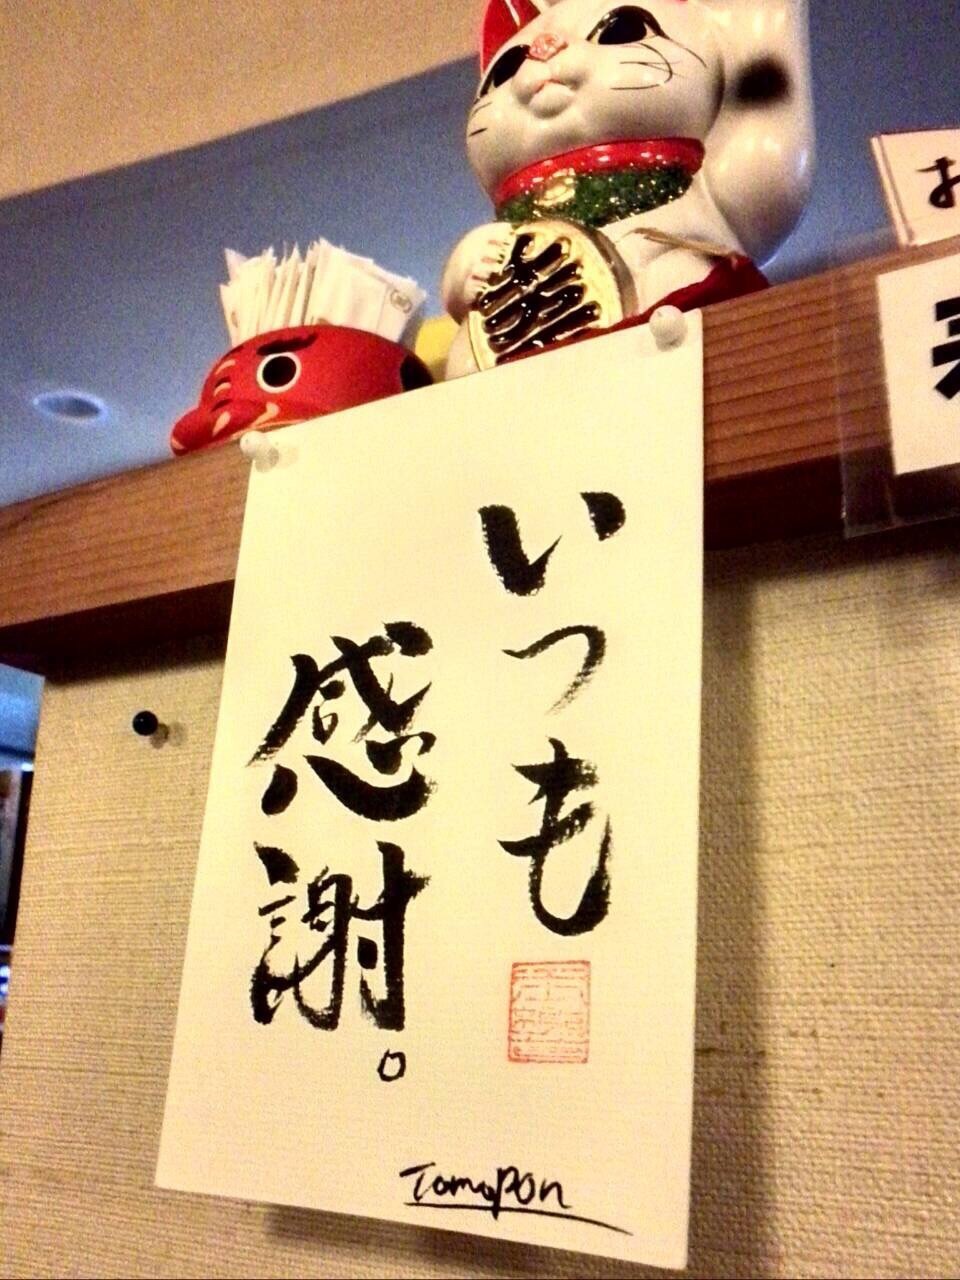 いつも
感謝。
Tomopon
お